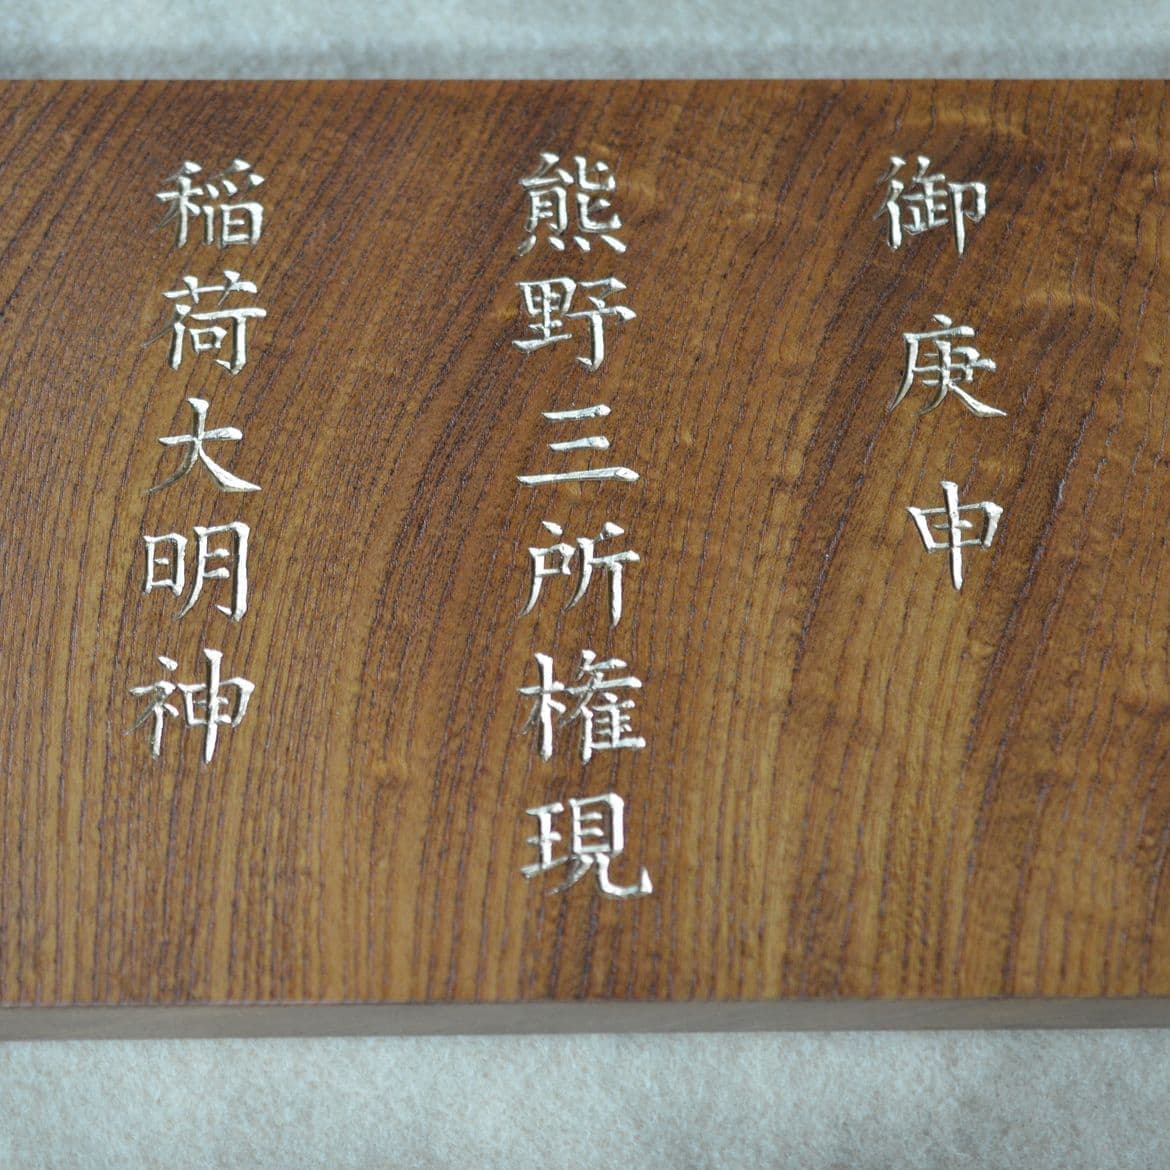 御庚申
熊野三所権現
稲荷大明神